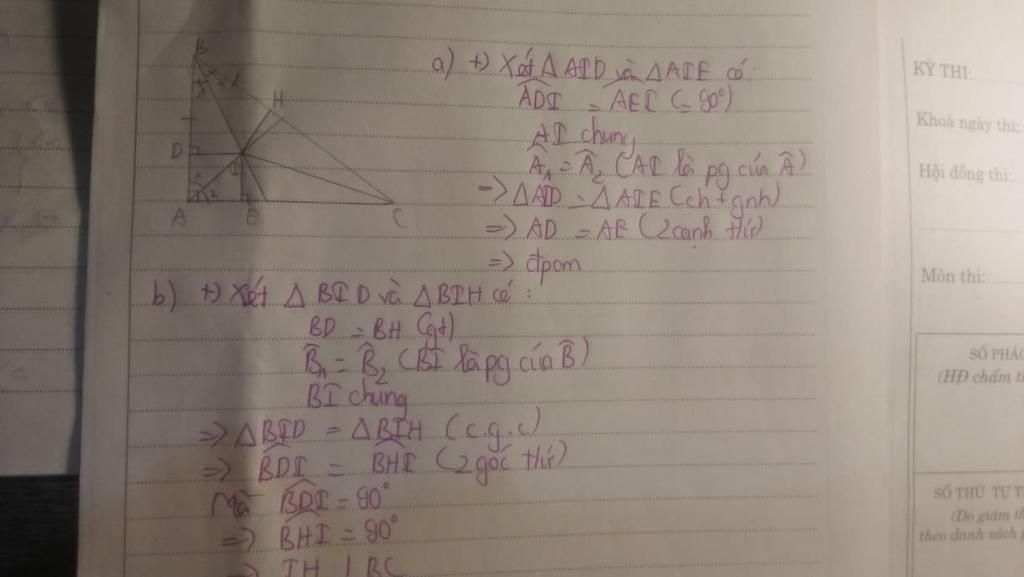 B
H
D
I
A
E
C
2
a) +) Xét △AID và △AIE có:
ADI = AEI (= 90°)
AI chung
Â₁ = Â₂ (AI là pg của Â)
=> △AID = △AIE (ch + gnh)
=> AD = AE (2 cạnh tứ)
=> đpcm
b) +) Xét △BID và △BIH có:
BD = BH (gt)
B̂₁ = B̂₂ (BI là pg của B̂)
BI chung
=> △BID = △BIH (c.g.c)
=> BDI = BHI (2 góc tứ)
Mà BDI = 90°
=> BHI = 90°
=> IH ⊥ BC
KỲ THI:
Khoá ngày thi:
Hội đồng thi:
Môn thi:
SỐ PHÁC
(HĐ chấm th
SỐ THỨ TỰ T
(Do giám th
theo danh sách